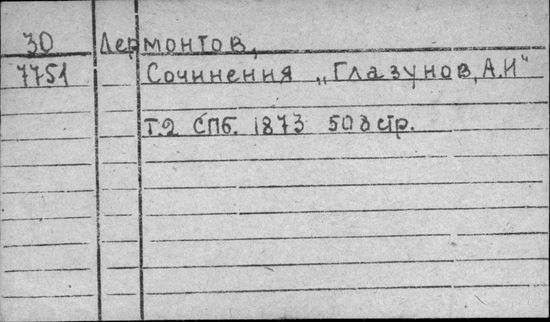 30 Лермонтов,
7751 Сочинения „Глазунов, А.И"
т.2 СПб. 1873 508 стр.